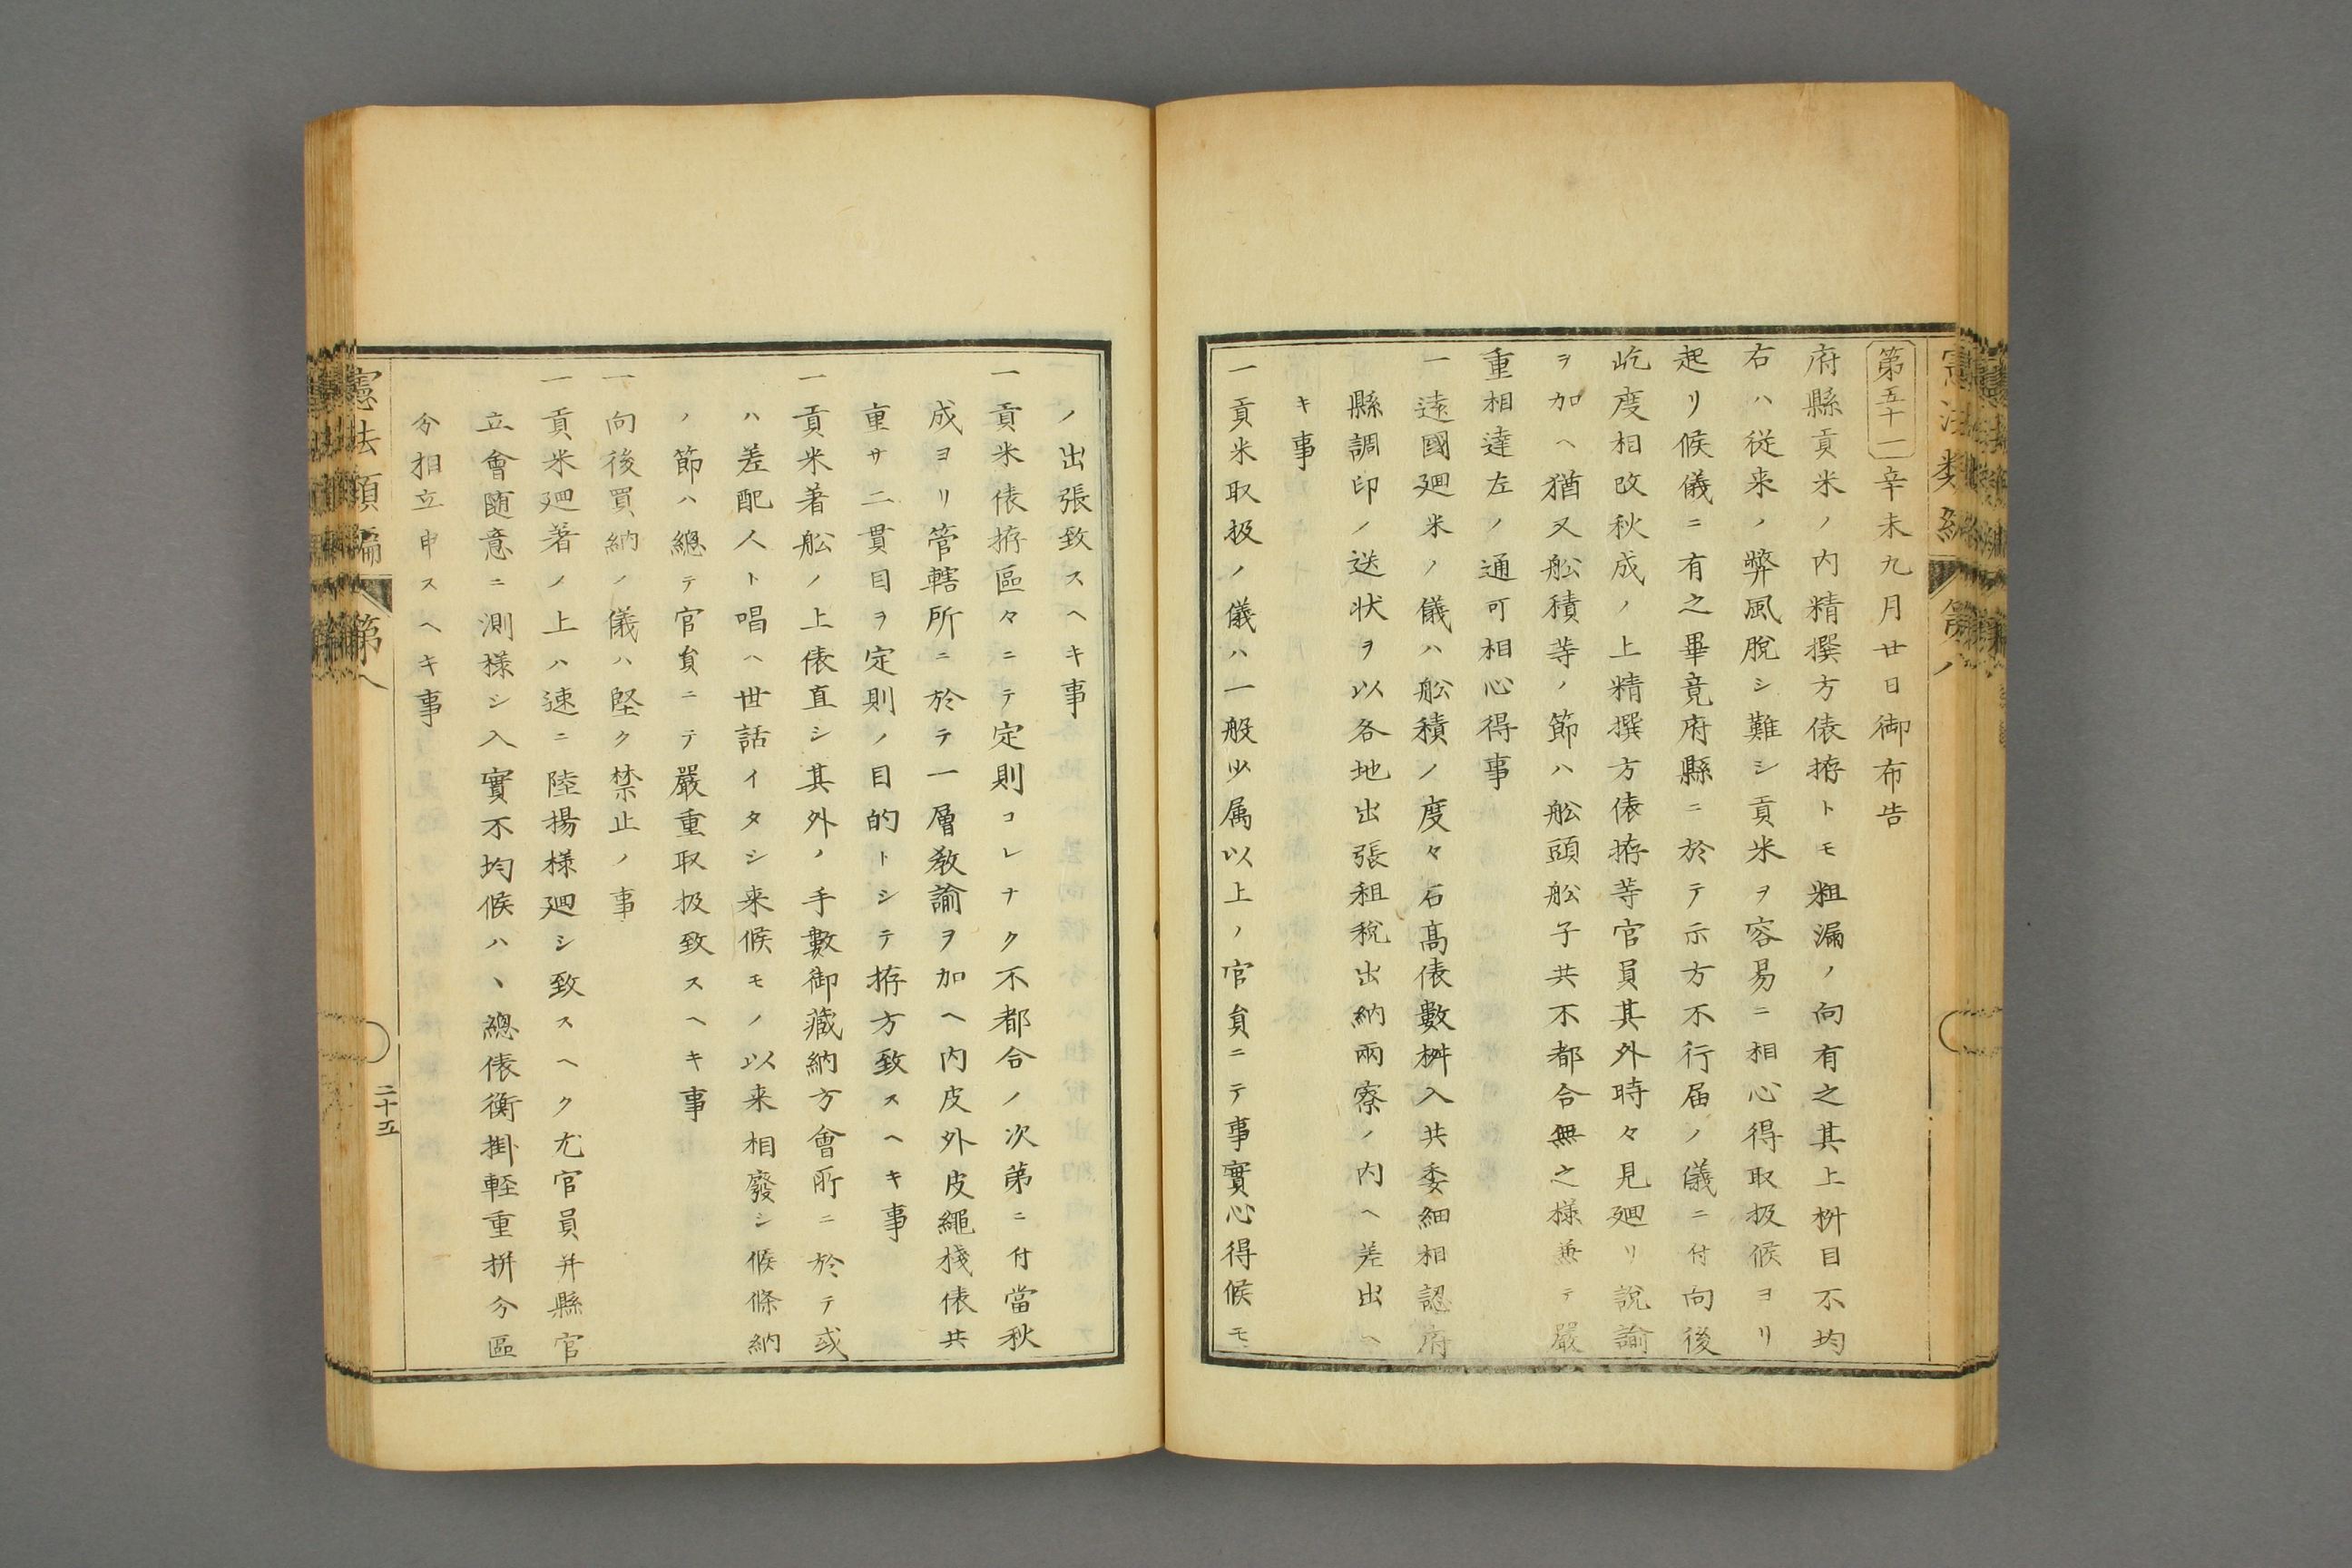 憲法類編 第八
第五十一 辛未九月廿日御布告
府縣貢米ノ内精撰方俵拵トモ粗漏ノ向有之其上桝目不均
右ハ従来ノ弊風脫シ難シ貢米ヲ容易ニ相心得取扱候ヨリ
起リ候儀ニ有之畢竟府縣ニ於テ示方不行届ノ儀ニ付向後
屹度相改秋成ノ上精撰方俵拵等官員其外時々見廻リ說諭
ヲ加ヘ猶又舩積等ノ節ハ舩頭舩子共不都合無之様兼テ嚴
重相達左ノ通可相心得事
一遠國廻米ノ儀ハ舩積ノ度々石高俵數桝入共委細相認府
縣調印ノ送状ヲ以各地出張租税出納兩寮ノ内ヘ差出ヘ
キ事
一貢米取扱ノ儀ハ一般少属以上ノ官貟ニテ事實心得候モ
ノ出張致スヘキ事
一貢米俵拵區々ニテ定則コレナク不都合ノ次第ニ付當秋
成ヨリ管轄所ニ於テ一層教諭ヲ加ヘ内皮外皮繩棧俵共
重サ二貫目ヲ定則ノ目的トシテ拵方致スヘキ事
一貢米著舩ノ上俵直シ其外ノ手數御藏納方會所ニ於テ或
ハ差配人ト唱ヘ世話イタシ来候モノ以来相廢シ候條納
ノ節ハ總テ官貟ニテ嚴重取扱致スヘキ事
一向後買納ノ儀ハ堅ク禁止ノ事
一貢米廻著ノ上ハ速ニ陸揚様廻シ致スヘク尤官員并縣官
立會随意ニ測様シ入實不均候ハヽ總俵衡掛輊重拼分區
分相立申スヘキ事
憲法類編 第八
二十五